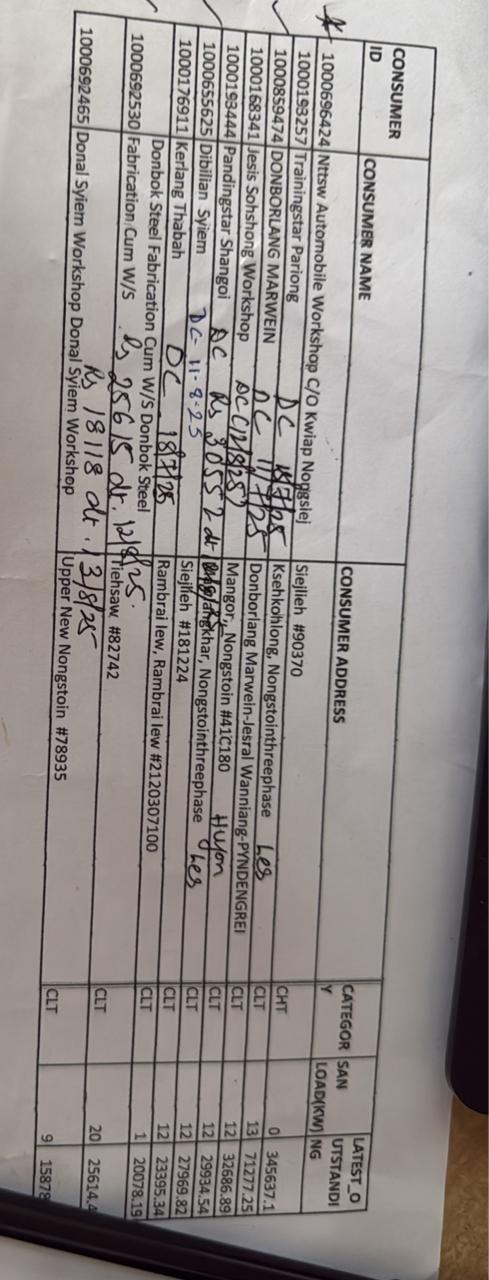 CONSUMER ID CONSUMER NAME CONSUMER ADDRESS CATEGOR Y SAN LOAD(KW) LATEST_O UTSTANDI NG
1000696424 Nttsw Automobile Workshop C/O Kwiap Nongslej Siejlieh #90370 CHT 0 345637.1
1000193257 Trainingstar Pariong DC 18/7/25 Ksehkohlong, Nongstointhreephase Les CLT 13 71277.25
1000859474 DONBORLANG MARWEIN DC 11/7/25 Donborlang Marwein-Jesral Wanniang-PYNDENGREI CLT 12 32686.89
1000168341 Jesis Sohshong Workshop DC (12/8/25) Mangor,, Nongstoin #41C180 CLT 12 29934.54
1000193444 Pandingstar Shangoi DC Rs 30552 dt Nongstointhreephase CLT 12 27969.82
1000655625 Dibilian Syiem DC 11-8-25 Siejlieh #181224 Les CLT 12 23395.34
1000176911 Kerlang Thabah DC 18/7/25 Rambrai lew, Rambrai lew #2120307100 CLT 1 20078.19
Donbok Steel Fabrication Cum W/S Donbok Steel
1000692530 Fabrication Cum W/S Rs 25615 dt. 12/8/25. Tiehsaw #82742 CLT 20 25614.4
1000692465 Donal Syiem Workshop Donal Syiem Workshop Rs 18118 dt. 13/8/25 Upper New Nongstoin #78935 CLT 9 15878